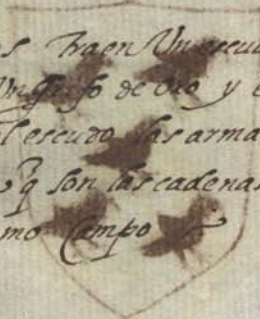 s Traen Un escud
Un Grifo de Oro y e
l escudo las arma
q̃ son las cadenas
mo Campo